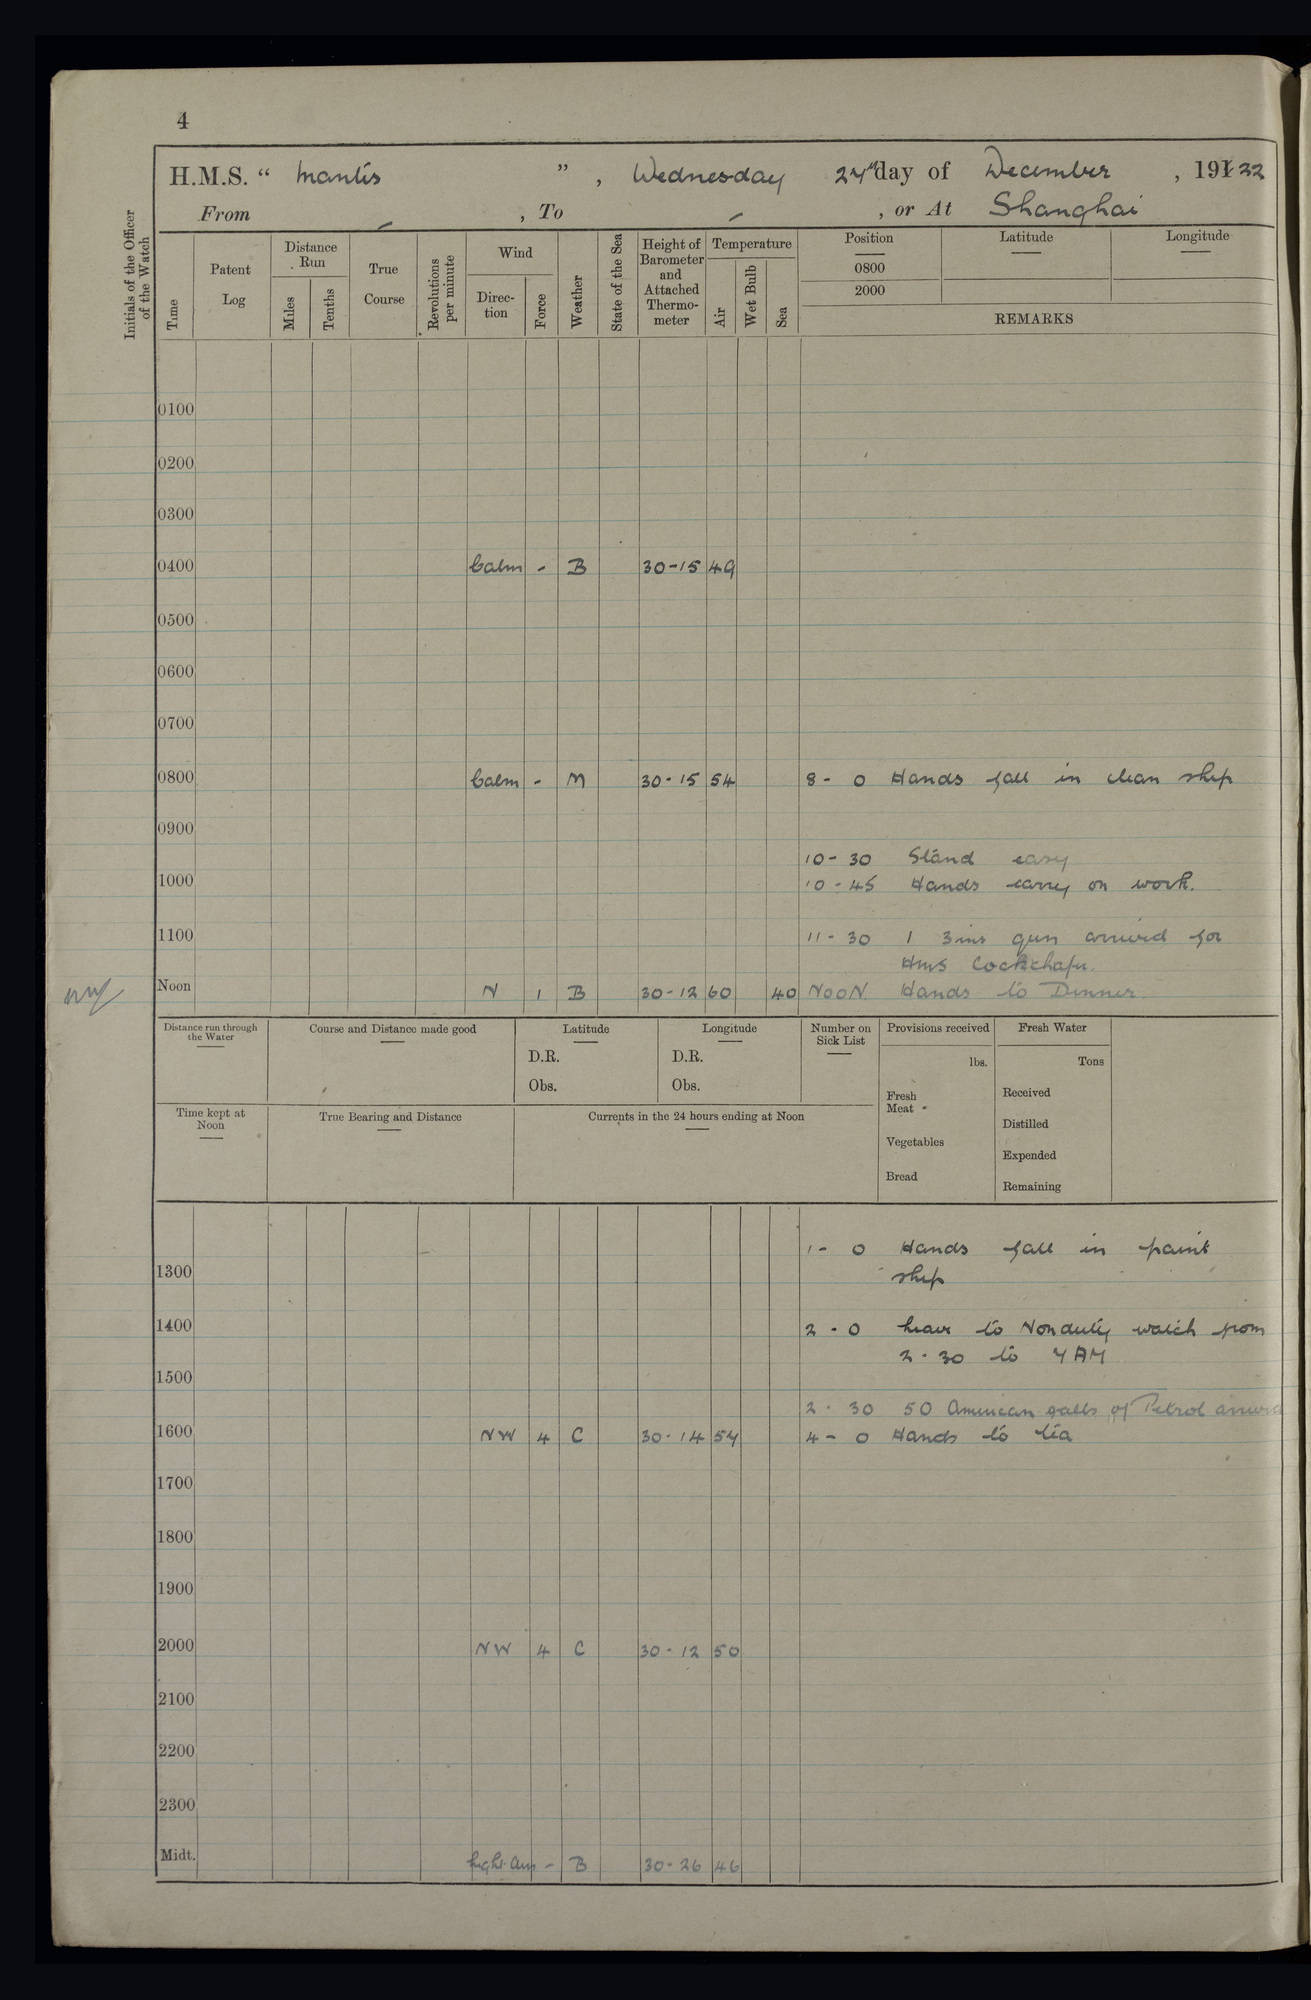 4
H.M.S. “ Mantis ” , Wednesday 27th day of December , 1922
From - , To - , or At Shanghai
Initials of the Officer of the Watch
Time
Patent Log
Distance Run
Miles
Tenths
True Course
Revolutions per minute
Wind
Direc-tion
Force
Weather
State of the Sea
Height of Barometer and Attached Thermo-meter
Temperature
Air
Wet Bulb
Sea
Position
Latitude
Longitude
0800
2000
REMARKS
0100
0200
0300
0400 Calm - B 30-15 49
0500
0600
0700
0800 Calm - M 30-15 54 8-0 Hands fall in clean ship
0900
10-30 Stand easy
1000 10-45 Hands carry on work.
1100 11-30 1 3ins gun arrived for
HMS Cockchafer.
Noon N 1 B 30-12 60 40 NOON Hands to Dinner
Distance run through the Water
Course and Distance made good
Latitude
D.R.
Obs.
Longitude
D.R.
Obs.
Number on Sick List
Provisions received
lbs.
Fresh Meat
Vegetables
Bread
Fresh Water
Tons
Received
Distilled
Expended
Remaining
Time kept at Noon
True Bearing and Distance
Currents in the 24 hours ending at Noon
1-0 Hands fall in paint
1300 ship
1400 2-0 leave to Nonduty watch from
2-30 to 7AM
1500
2-30 50 American galls of Petrol arrived
1600 NW 4 C 30-14 57 4-0 Hands to tea
1700
1800
1900
2000 NW 4 C 30-12 50
2100
2200
2300
Midt. light airs - B 30-26 46